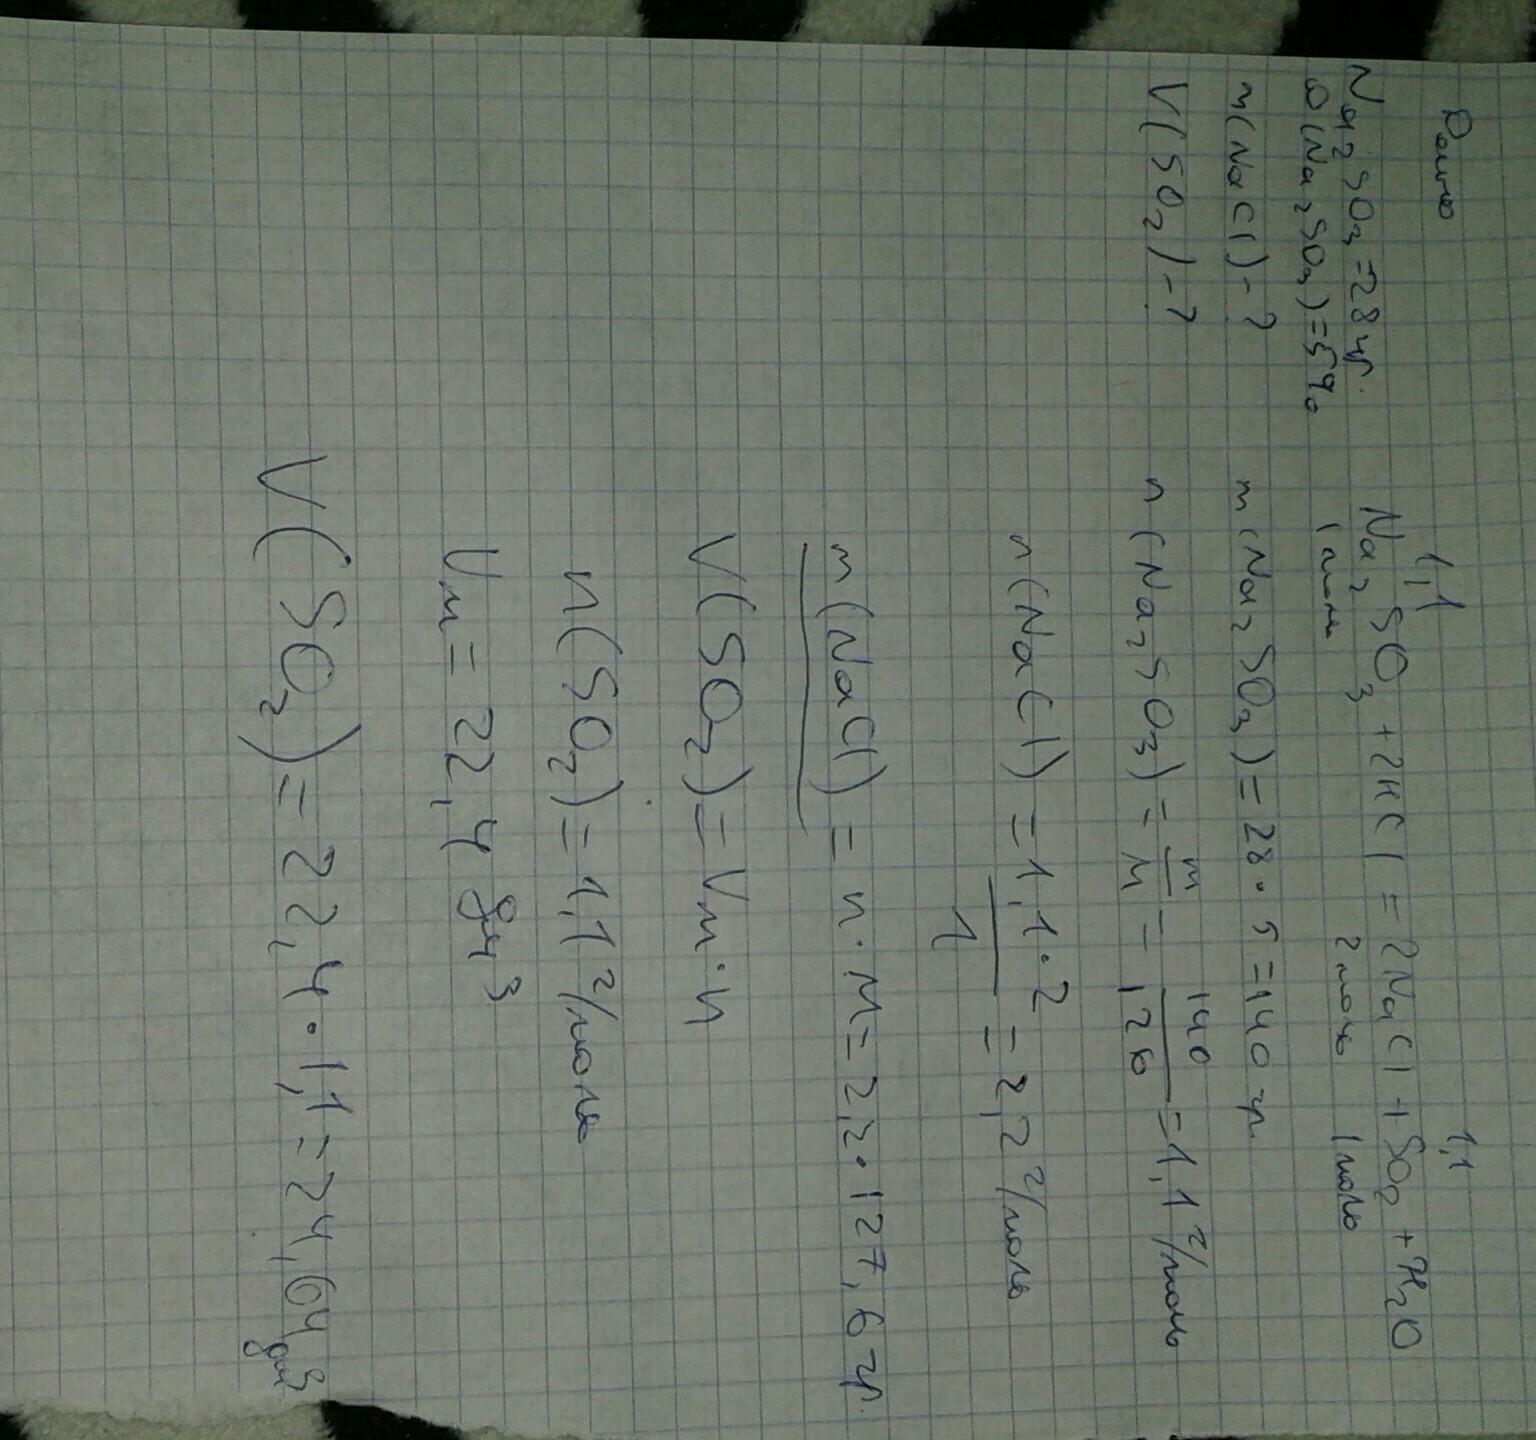 Дано
Na2SO3=28 гр.
ω(Na2SO3)=5%
m(NaCl)-?
V(SO2)-?
1,1 1,1
Na2SO3+2HCl=2NaCl+SO2+H2O
1 моль 2 моль 1 моль
m(Na2SO3)=28·5=140 гр.
n(Na2SO3)=m/M=140/126=1,1 г/моль
n(NaCl)=1,1·2/1=2,2 г/моль
m(NaCl)=n·M=2,2·127,6 гр.
V(SO2)=Vm·n
n(SO2)=1,1 г/моль
Vm=22,4 дм3
V(SO2)=22,4·1,1=24,64 дм3